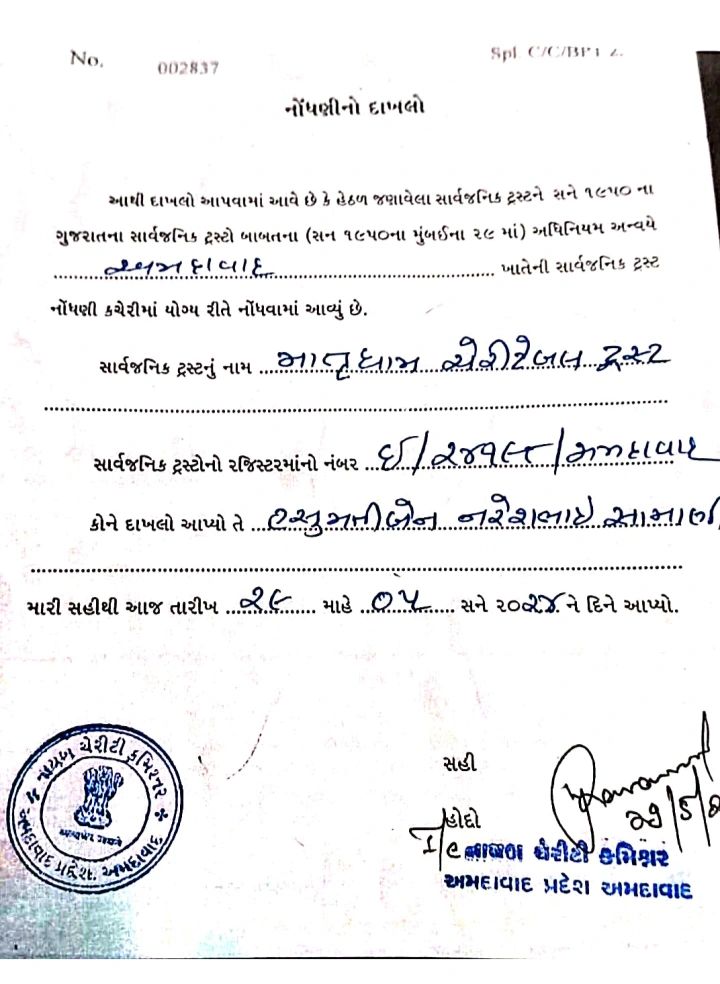 No. 002837
Spl. C/C/BPT 2.
નોંધણીનો દાખલો
આથી દાખલો આપવામાં આવે છે કે હેઠળ જણાવેલા સાર્વજનિક ટ્રસ્ટને સને ૧૯૫૦ ના
ગુજરાતના સાર્વજનિક ટ્રસ્ટો બાબતના (સન ૧૯૫૦ના મુંબઈના ૨૯ માં) અધિનિયમ અન્વયે
અમદાવાદ ખાતેની સાર્વજનિક ટ્રસ્ટ
નોંધણી કચેરીમાં યોગ્ય રીતે નોંધવામાં આવ્યું છે.
સાર્વજનિક ટ્રસ્ટનું નામ માતૃધામ ચેરીટેબલ ટ્રસ્ટ
સાર્વજનિક ટ્રસ્ટોનો રજિસ્ટરમાંનો નંબર ઈ/૨૪૧૯૯/અમદાવાદ
કોને દાખલો આપ્યો તે હસુમતીબેન નરેશભાઈ સામાણી
મારી સહીથી આજ તારીખ ૨૯ માહે ૦૫ સને ૨૦૨૪ ને દિને આપ્યો.
નાયબ ચેરીટી કમિશ્નર
અમદાવાદ પ્રદેશ, અમદાવાદ
સહી
હોદ્દો
I/c નાયબ ચેરીટી કમિશ્નર
અમદાવાદ પ્રદેશ અમદાવાદ